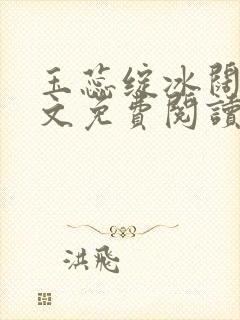 玉蕊绽冰阔
文免費閱讀
洪飛